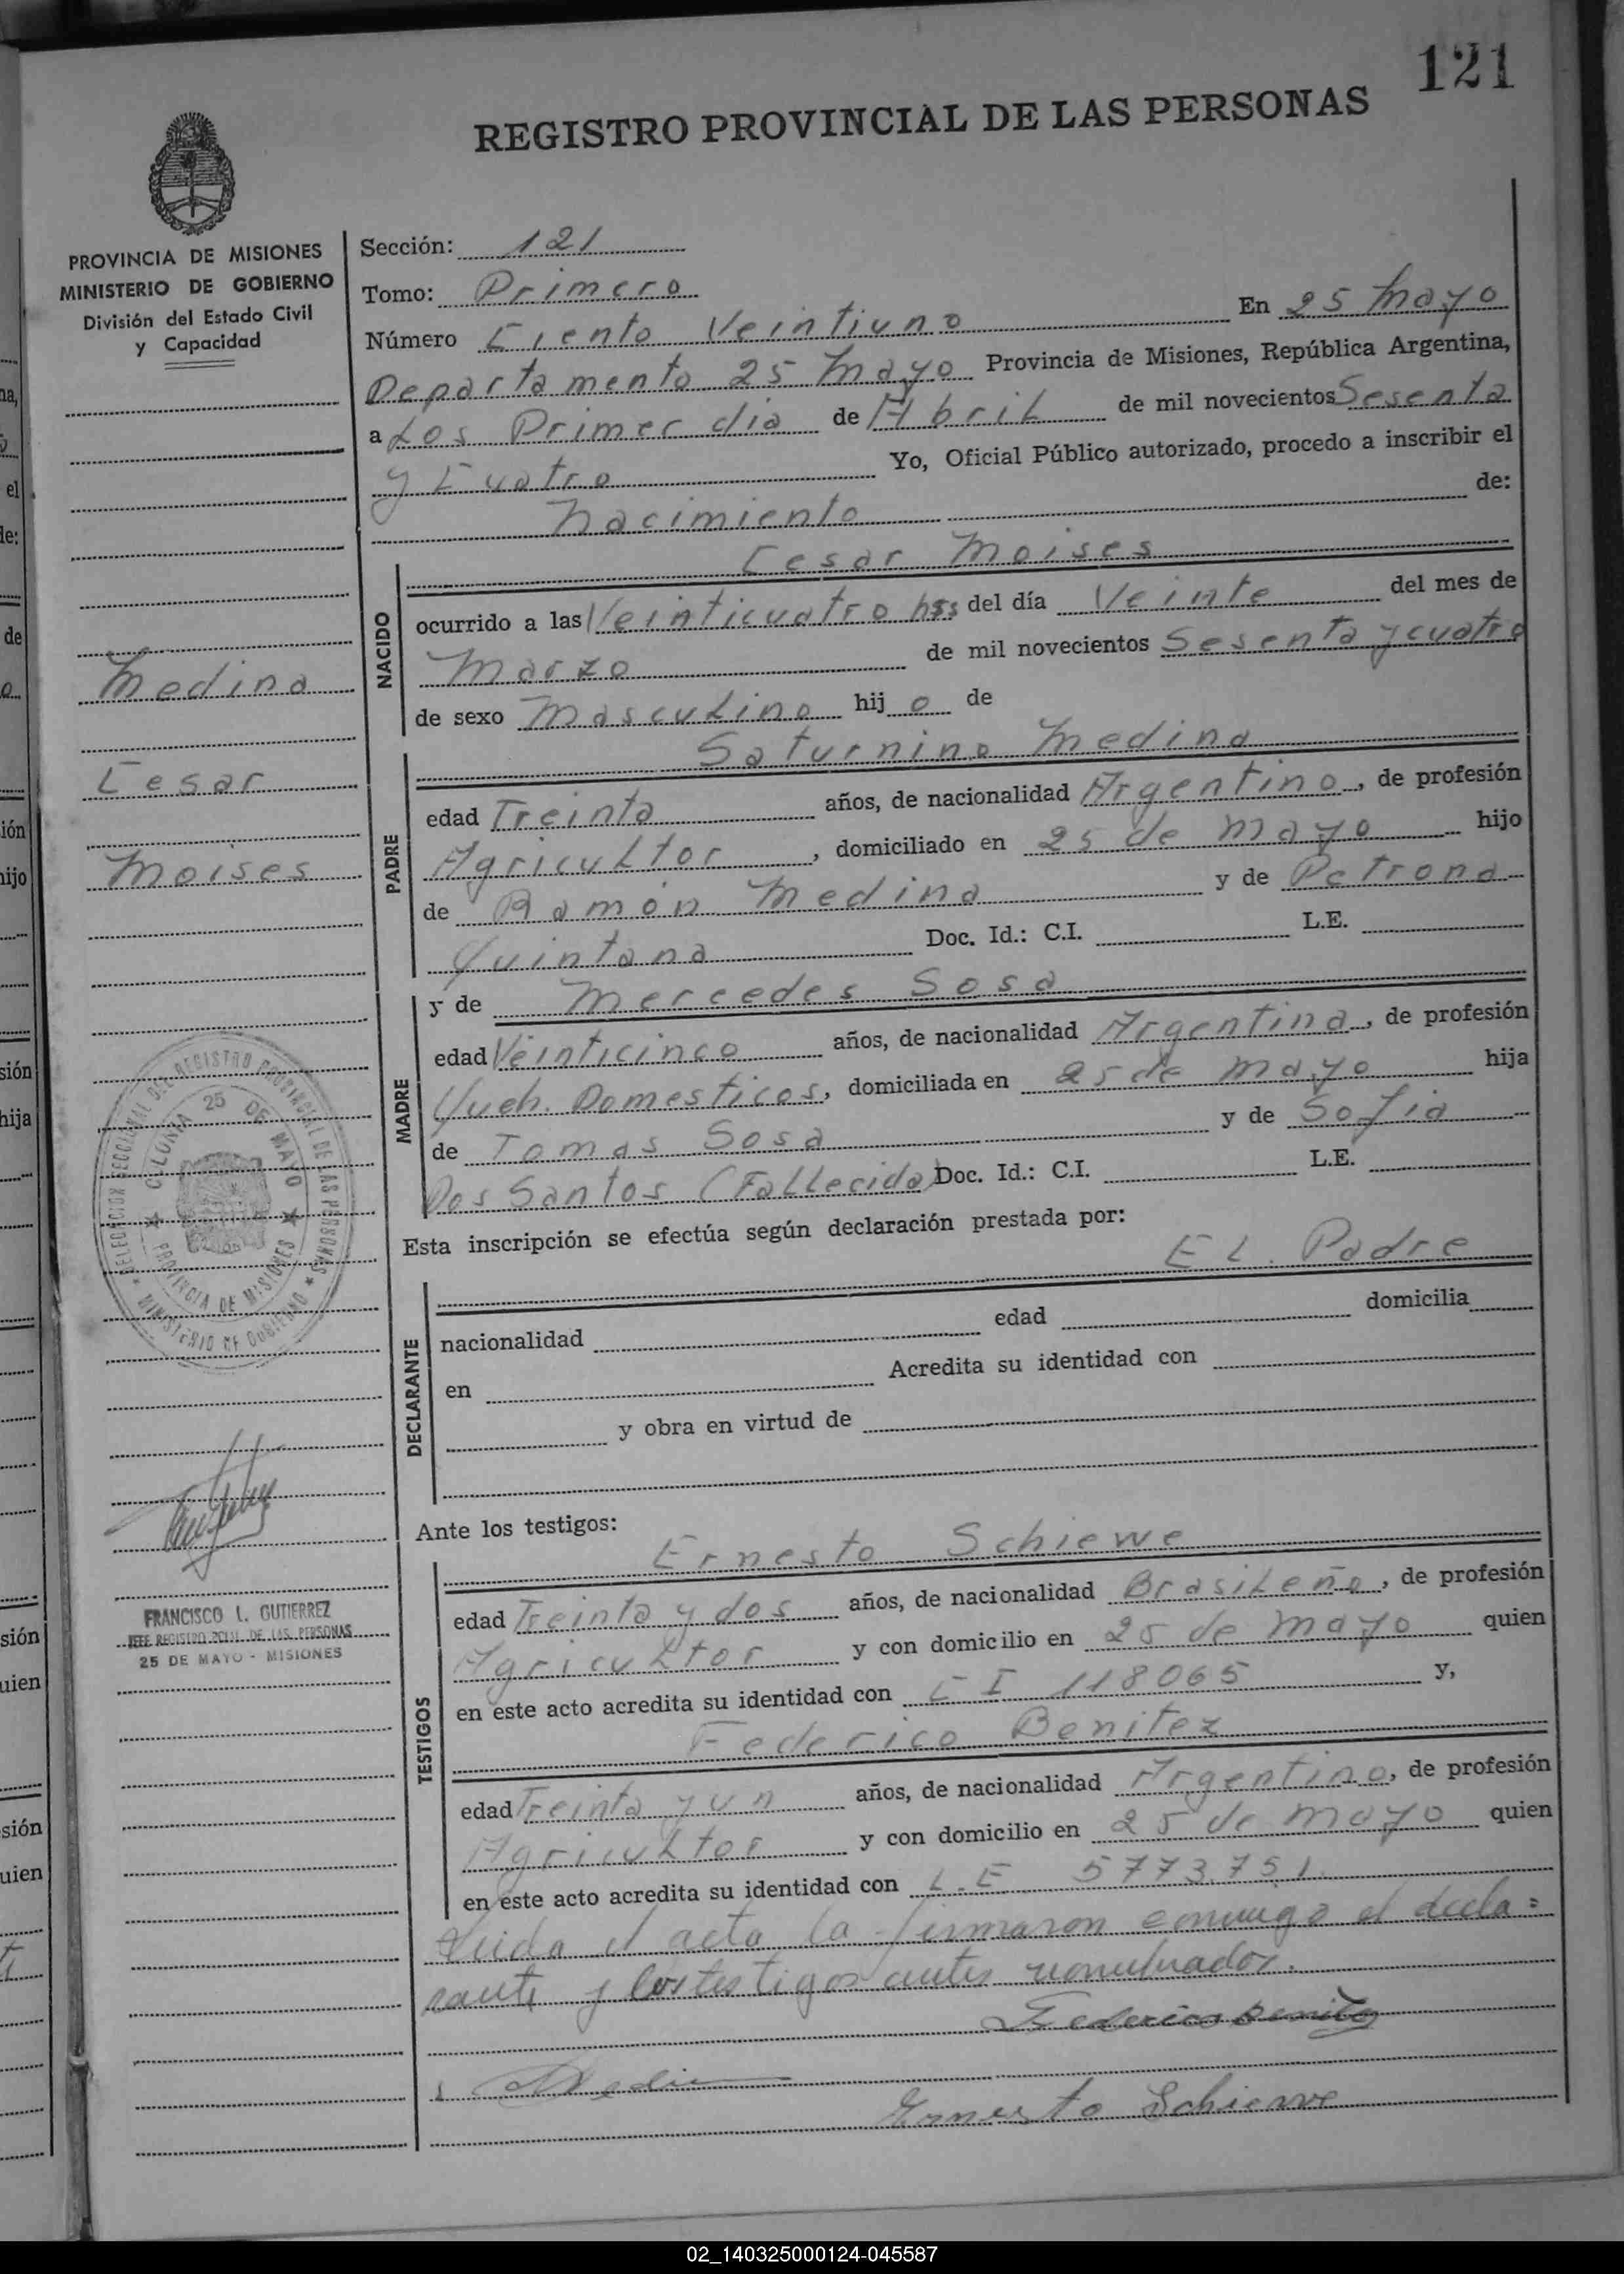 121
REGISTRO PROVINCIAL DE LAS PERSONAS
PROVINCIA DE MISIONES
MINISTERIO DE GOBIERNO
División del Estado Civil
y Capacidad
Medina
Cesar
Moises
DELEGACION SECCIONAL DEL REGISTRO PROVINCIAL DE LAS PERSONAS
COLONIA 25 DE MAYO
PROVINCIA DE MISIONES
MINISTERIO DE GOBIERNO
FRANCISCO L. GUTIERREZ
JEFE REGISTRO PCIAL. DE LAS PERSONAS
25 DE MAYO - MISIONES
Sección: 121
Tomo: Primero
Número Ciento Veintiuno En 25 Mayo
Departamento 25 Mayo Provincia de Misiones, República Argentina,
a Los Primer dia de Abril de mil novecientos Sesenta
y Cuatro Yo, Oficial Público autorizado, procedo a inscribir el
Nacimiento de:
NACIDO
Cesar Moises
ocurrido a las Veinticuatro hss del día Veinte del mes de
Marzo de mil novecientos Sesenta y cuatro
de sexo Masculino hij o de
PADRE
Saturnino Medina
edad Treinta años, de nacionalidad Argentino, de profesión
Agricultor, domiciliado en 25 de Mayo hijo
de Ramón Medina y de Petrona
Quintana Doc. Id.: C.I. L.E.
MADRE
y de Mercedes Sosa
edad Veinticinco años, de nacionalidad Argentina, de profesión
Queh. Domesticos, domiciliada en 25 de Mayo hija
de Tomas Sosa y de Sofia
Dos Santos (Fallecida) Doc. Id.: C.I. L.E.
Esta inscripción se efectúa según declaración prestada por:
DECLARANTE
El Padre
nacionalidad edad domicilia
en Acredita su identidad con
y obra en virtud de
Ante los testigos:
TESTIGOS
Ernesto Schiewe
edad Treinta y dos años, de nacionalidad Brasileño, de profesión
Agricultor y con domicilio en 25 de Mayo quien
en este acto acredita su identidad con C I 118065 y,
Federico Benitez
edad Treinta y un años, de nacionalidad Argentino, de profesión
Agricultor y con domicilio en 25 de Mayo quien
en este acto acredita su identidad con L.E 5773.751.
Leida el acta la firmaron conmigo el decla=
rante y los testigos antes nombrados.
Federico Benitez
Medina
Ernesto Schiewe
02_140325000124-045587